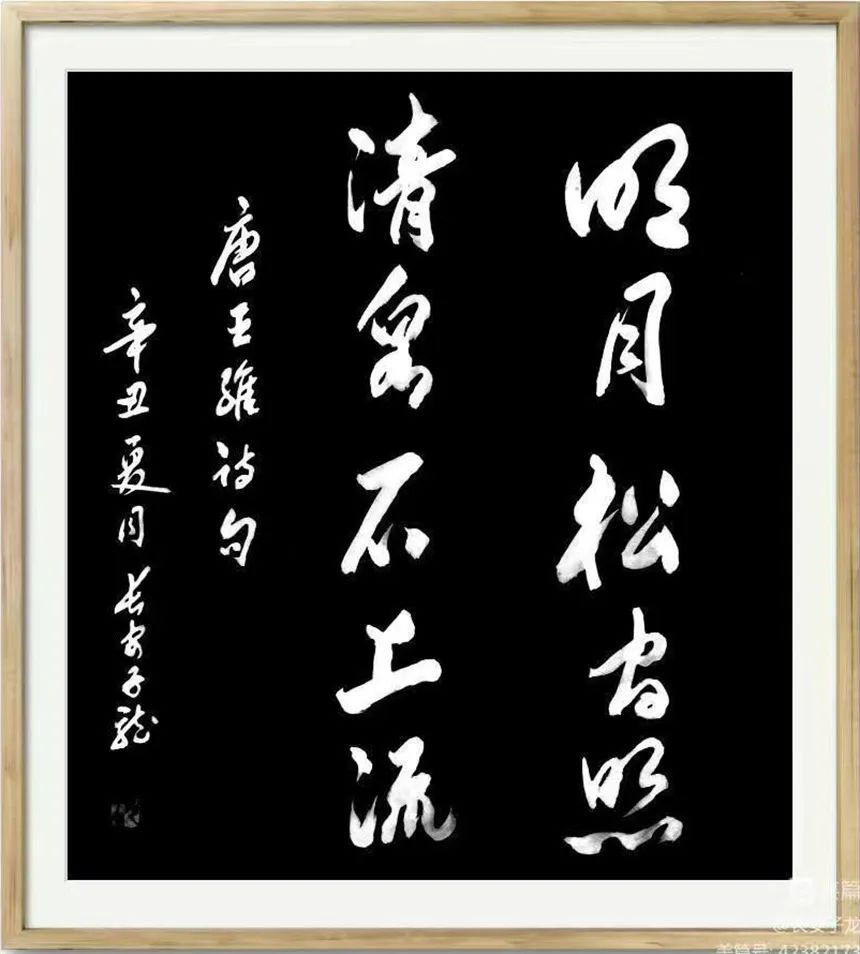 明月松間照
清泉石上流
唐王維詩句
辛丑夏月長安子龍
美篇
@长安子龙
美篇号: 42382173